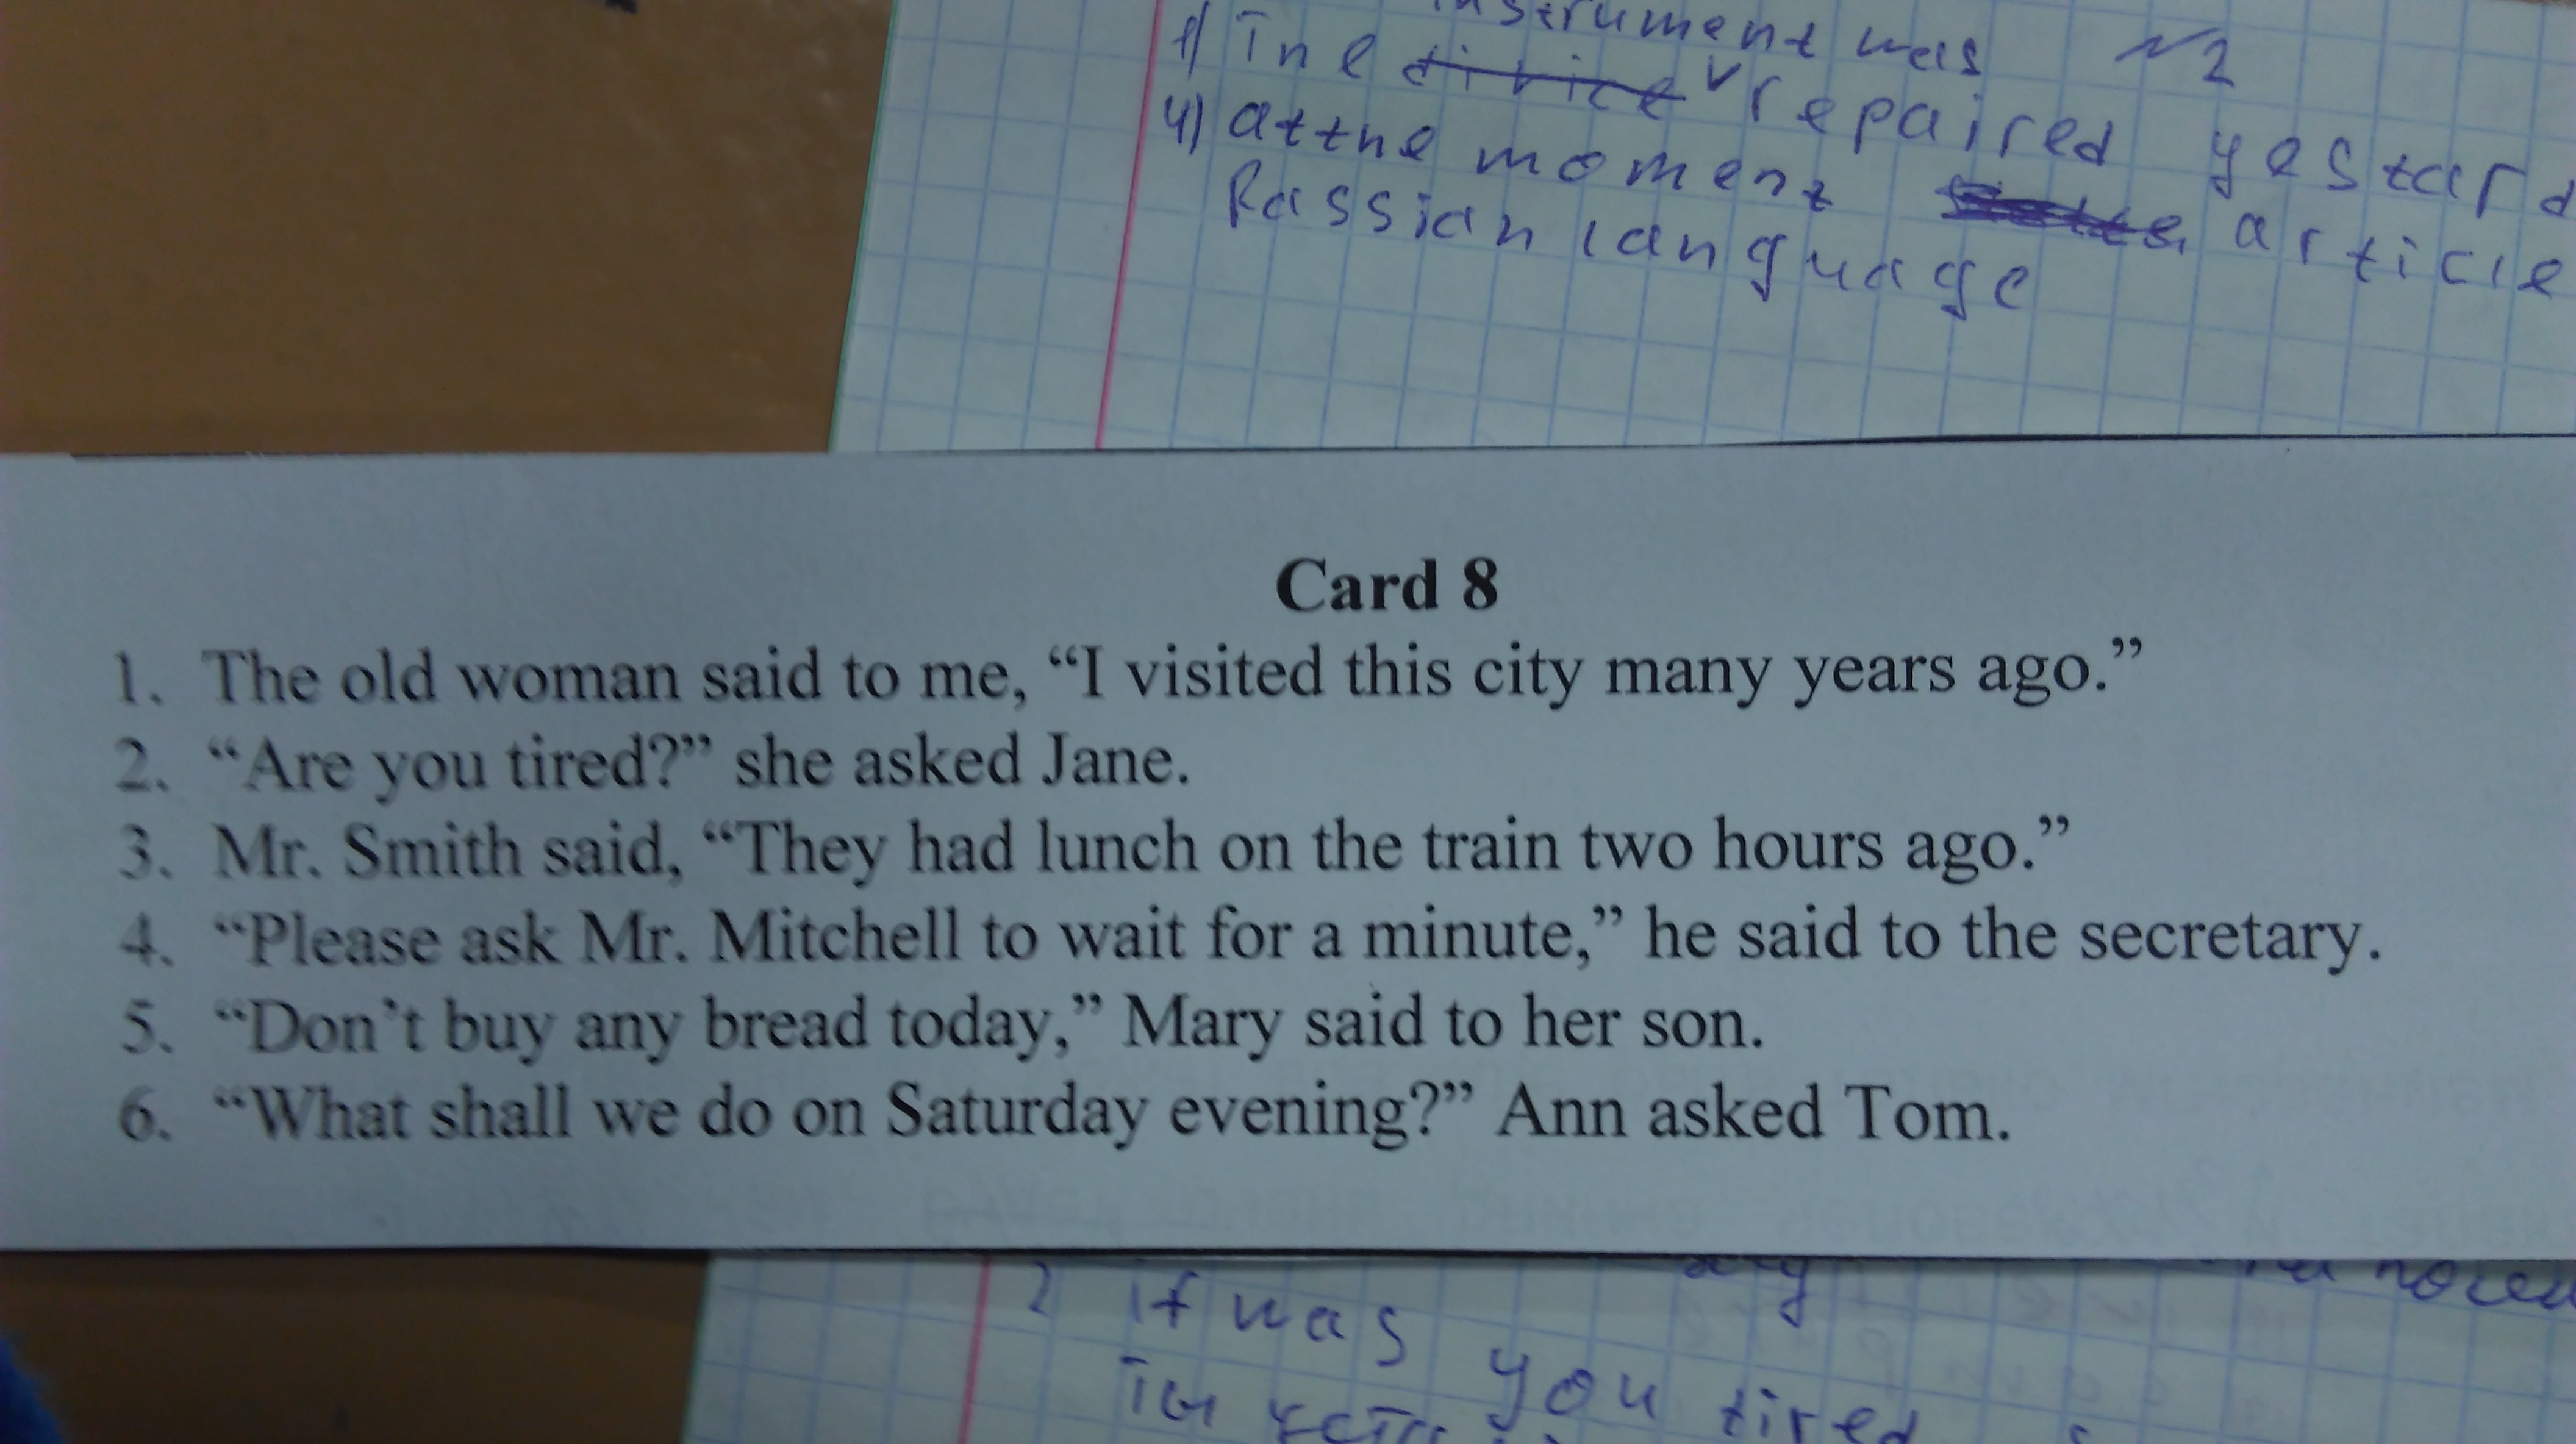 instrument was №2
1) The divice v repaired yestard
4) at the moment article
Rassian language
Card 8
1. The old woman said to me, “I visited this city many years ago.”
2. “Are you tired?” she asked Jane.
3. Mr. Smith said, “They had lunch on the train two hours ago.”
4. “Please ask Mr. Mitchell to wait for a minute,” he said to the secretary.
5. “Don’t buy any bread today,” Mary said to her son.
6. “What shall we do on Saturday evening?” Ann asked Tom.
2 if was you tired